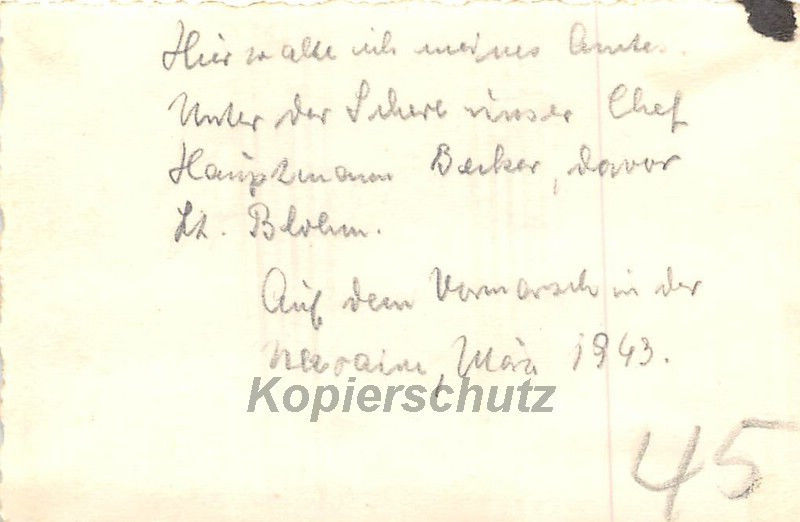 Hier walte ich meines Amtes.
Unter der Schere unser Chef
Hauptmann Becker, davor
Lt. Blohm.
Auf dem Vormarsch in der
Ukraine, März 1943.
Kopierschutz
45